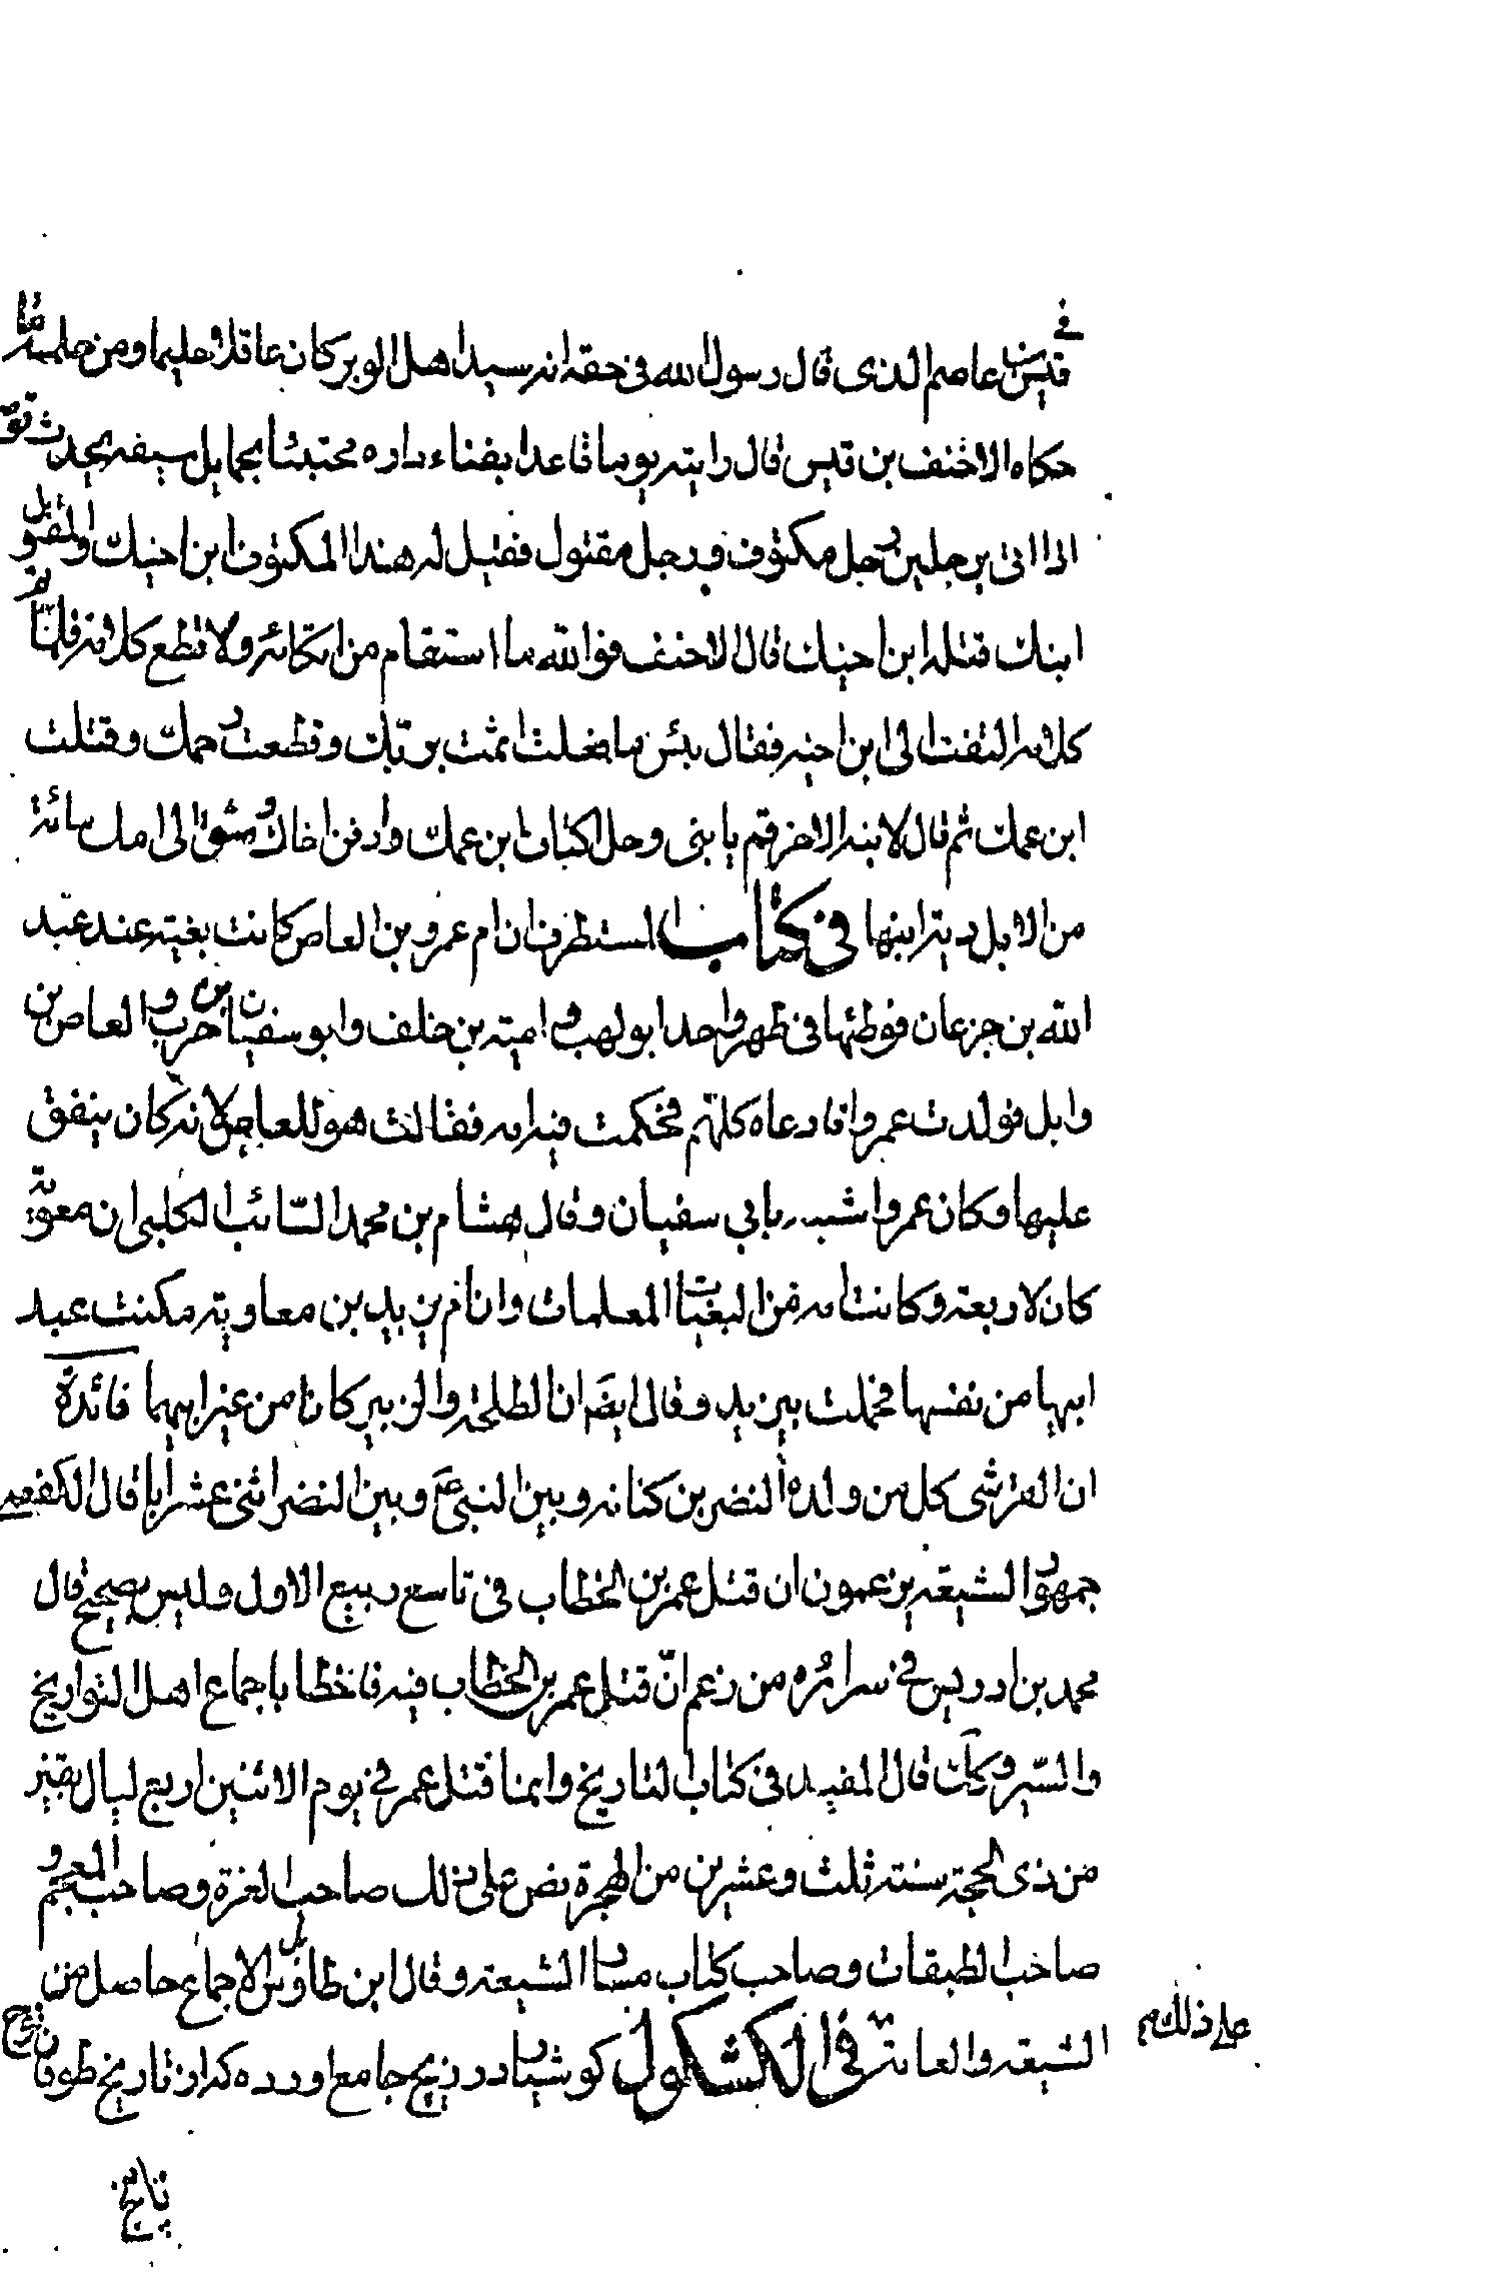 في
قيس بن عاصم الذى قال رسول الله فى حقه انه سيد اهل الوبر كان عاقلا حليما ومن حلمه ما
حكاه الاخنف بن قيس قال رايته يوما قاعدا بفناء داره محتبئا بحمايل سيفه يحدث قومه
اذا اتى برجلين رجل مكتوف ورجل مقتول فقيل له هذا المكتوف ابن اخيك والمقتول
ابنك قتله ابن اخيك قال الاحنف فوالله ما استقام من اتكائه ولا قطع كلامه فلما تم
كلامه التفت الى ابن اخيه فقال بئس ما فعلت اثمت بربك وقطعت رحمك وقتلت
ابن عمك ثم قال لابنه الاخر قم يا بنى وحل اكتاف ابن عمك وادفن اخاك وسق الى امك مائة
من الابل دية ابنها فى كتاب المستطرف ان ام عمرو بن العاص كانت بغية عند عبد
الله بن جزعان فوطئها فى طهر واحد ابو لهب و امية بن خلف وابو سفيان بن حرب و العاص بن
وايل فولدت عمروا فادعاه كلهم فحكمت فيه امه فقالت هو للعاص لانه كان ينفق
عليها وكان عمروا شبه بابي سفيان وقال هشام بن محمد السائب الكلبى ان معوية
كان لاربعة وكانت امه من البغيات المعلمات وان ام يزيد بن معاوية مكنت عبد
ابيها من نفسها فحملت بيزيد وقال ايضا ان الطلحة والزبير كانا من غير ابيهما فائدة
ان القرشى كل من ولده النضر بن كنانه وبين النبى ص وبين النضر اثنى عشر ابا قال الكفعمى
جمهور الشيعة يزعمون ان قتل عمر بن الخطاب فى تاسع ربيع الاول وليس بصحيح قال
محمد بن ادريس فى سرائره من زعم انّ قتل عمر بن الخطاب فيه فاخطا باجماع اهل التواريخ
والسّير وكك قال المفيد فى كتاب التاريخ وانما قتل عمر فى يوم الاثنين اربع ليال بقين
من ذى الحجة سنة ثلث وعشرين من الهجرة نص على ذلك صاحب الغرة وصاحب المعجم و
صاحب الطبقات وصاحب كتاب مسار الشيعة وقال ابن طاوس بل الاجماع حاصل من
الشيعة والعامة على ذلك فى الكشكول كوشيار در زيج جامع اورده كه از تاريخ طوفان نوح
تاريخ